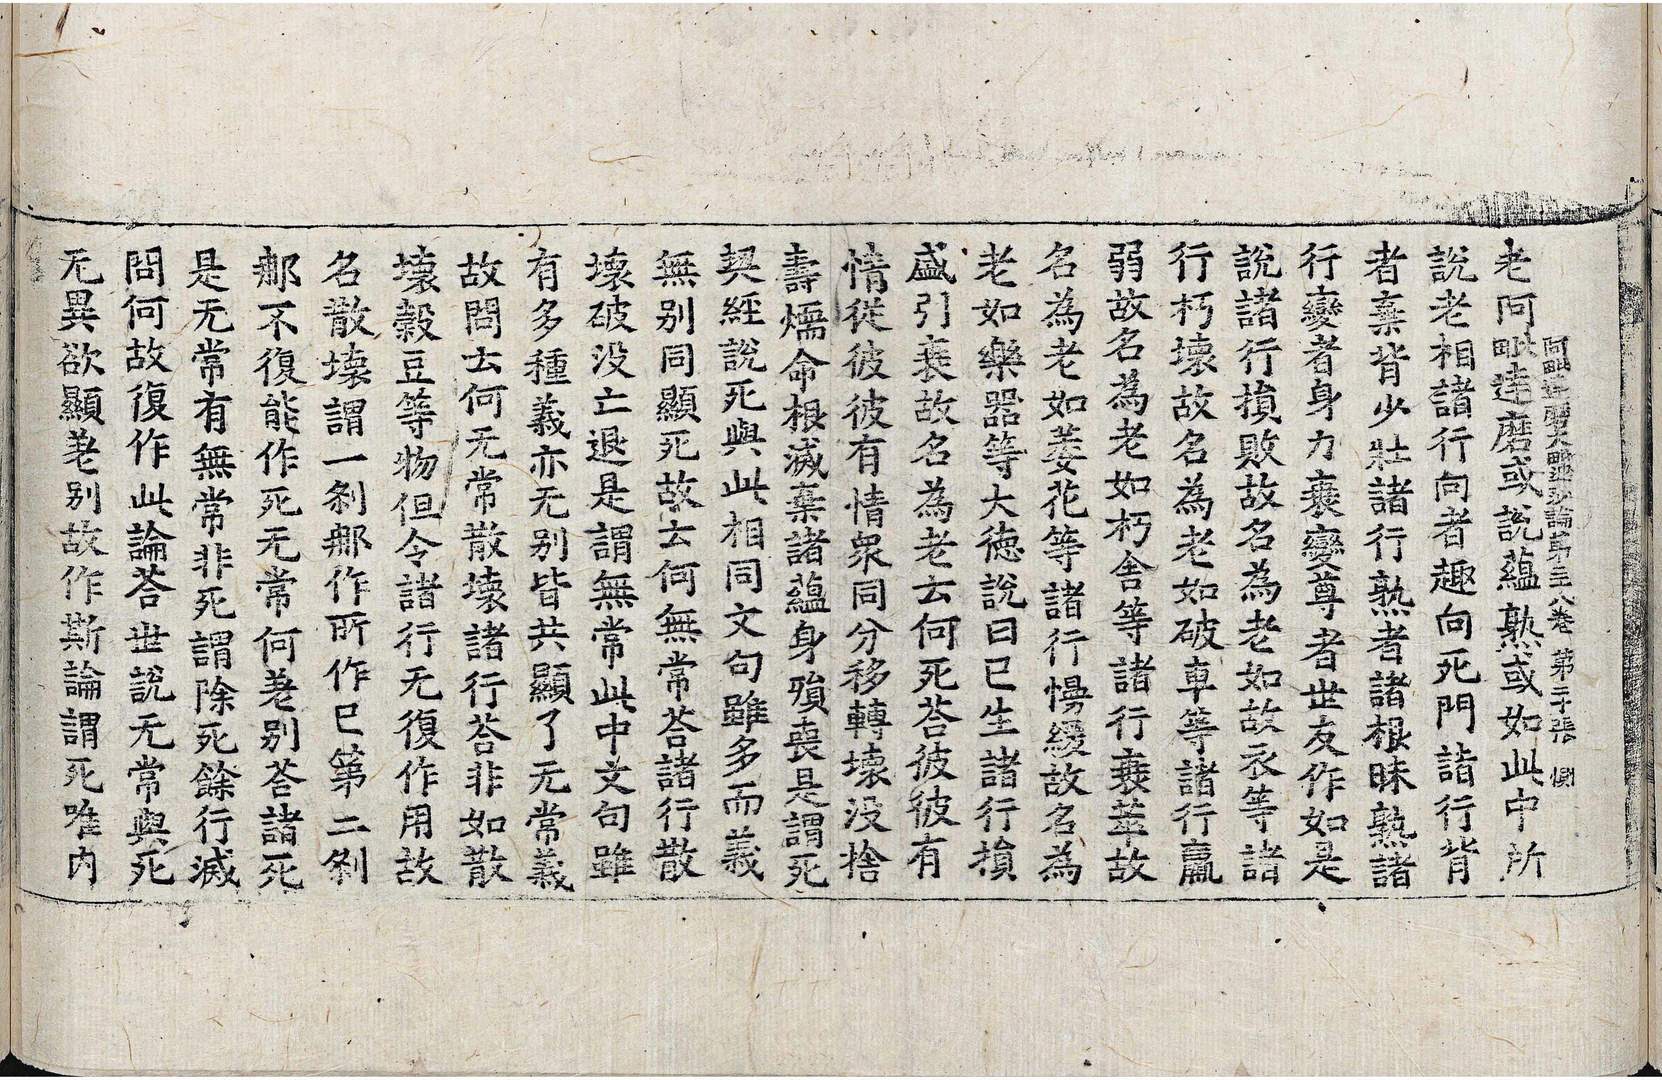 阿毗達磨大毗婆沙論第三八卷 第二十張 惻
老阿毗達磨或說蘊熟或如此中所
說老相諸行向者趣向死門諸行背
者棄背少壯諸行熟者諸根昧熟諸
行變者身力衰變尊者世友作如是
說諸行損敗故名為老如故衣等諸
行朽壞故名為老如破車等諸行羸
弱故名為老如朽舍等諸行衰萃故
名為老如萎花等諸行慢緩故名為
老如樂器等大德說曰已生諸行損
盛引衰故名為老云何死荅彼彼有
情從彼彼有情衆同分移轉壞没捨
壽煗命根滅棄諸蘊身殞喪是謂死
契經說死與此相同文句雖多而義
無别同顯死故云何無常荅諸行散
壞破没亡退是謂無常此中文句雖
有多種義亦无别皆共顯了无常義
故問云何无常散壞諸行荅非如散
壞穀豆等物但令諸行无復作用故
名散壞謂一刹那作所作已第二刹
那不復能作死无常何差别荅諸死
是无常有無常非死謂除死餘行滅
問何故復作此論荅世說无常與死
无異欲顯差别故作斯論謂死唯内